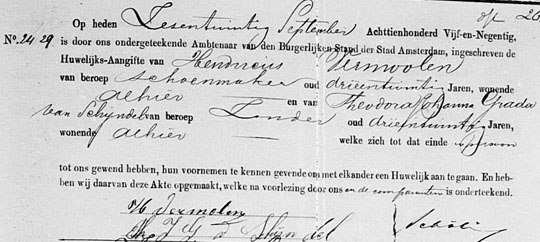 op 26
Op heden Zesentwintig September Achttienhonderd Vijf-en-Negentig,
No. 2429 is door ons ondergeteekende Ambtenaar van den Burgerlijken Stand der Stad Amsterdam, ingeschreven de
Huwelijks-Aangifte van Hendricus Vermolen
van beroep schoenmaker oud drieëntwintig Jaren, wonende
alhier en van Theodora Johanna Grada
van Schijndel van beroep Zonder oud drieëntwintig Jaren,
wonende alhier welke zich tot dat einde in persoon
tot ons gewend hebben, hun voornemen te kennen gevende om met elkander een Huwelijk aan te gaan. En heb-
ben wij daarvan deze Akte opgemaakt, welke na voorlezing door ons en de comparanten is onderteekend.
H Vermolen
Th. J. G. v. Schijndel